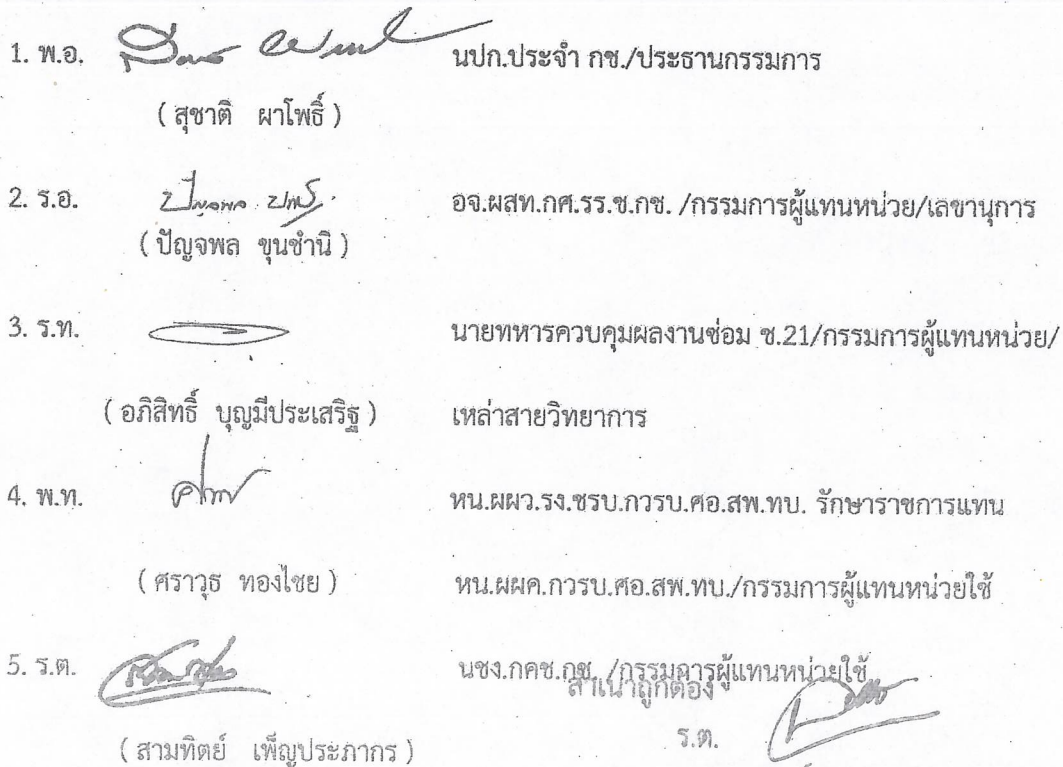 1. พ.อ. นปก.ประจำ กช./ประธานกรรมการ
( สุชาติ ผาโพธิ์ )
2. ร.อ. ปัญจพล อจ.ผสท.กศ.รร.ช.กช. /กรรมการผู้แทนหน่วย/เลขานุการ
( ปัญจพล ขุนชำนิ )
3. ร.ท. นายทหารควบคุมผลงานซ่อม ช.21/กรรมการผู้แทนหน่วย/
( อภิสิทธิ์ บุญมีประเสริฐ ) เหล่าสายวิทยาการ
4. พ.ท. หน.ผผว.รง.ซรบ.กวรบ.ศอ.สพ.ทบ. รักษาราชการแทน
( ศราวุธ ทองไชย ) หน.ผผค.กวรบ.ศอ.สพ.ทบ./กรรมการผู้แทนหน่วยใช้
5. ร.ต. นชง.กคช.กช. /กรรมการผู้แทนหน่วยใช้
สำเนาถูกต้อง
ร.ต.
( สามทิตย์ เพ็ญประภากร )